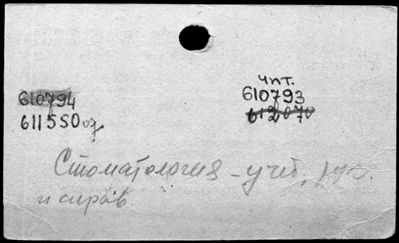 чит.
610794 610793
611550 612070
Стоматология - учеб.
и справ